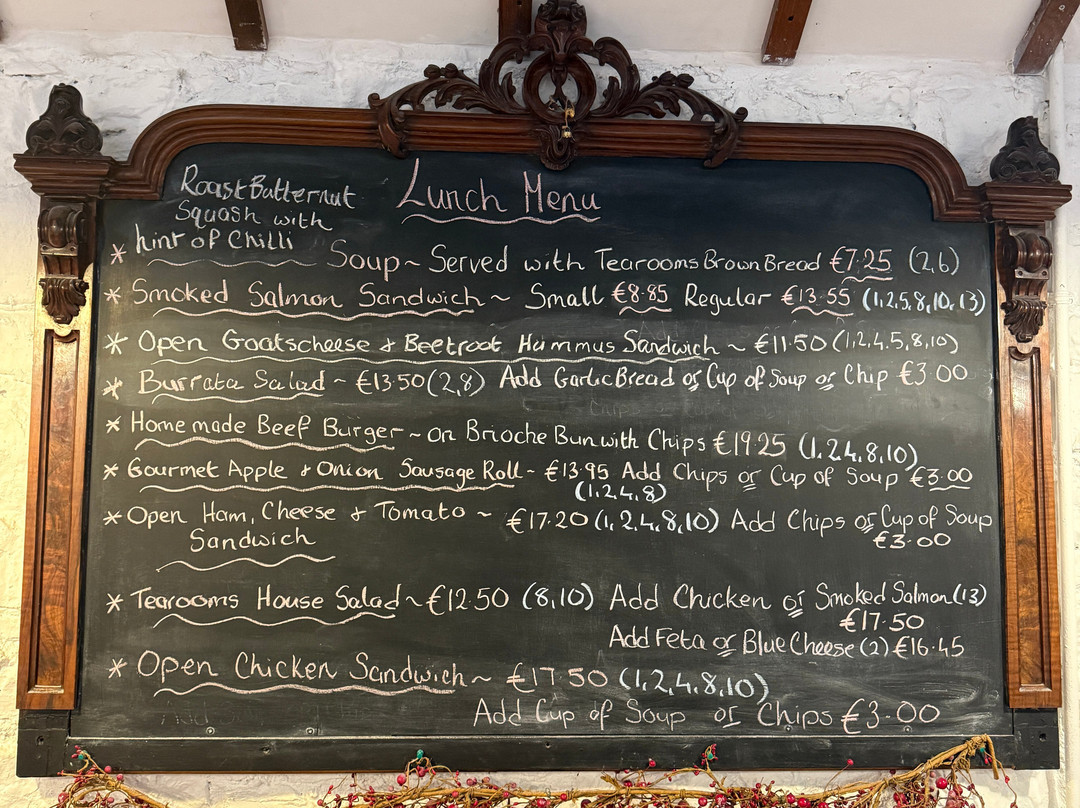 Lunch Menu
Roast Butternut
Squash with
hint of Chilli
* Soup ~ Served with Tearooms Brown Bread €7.25 (2,6)
* Smoked Salmon Sandwich ~ Small €8.85 Regular €13.55 (1,2,5,8,10,13)
* Open Goatscheese & Beetroot Hummus Sandwich ~ €11.50 (1,2,4,5,8,10)
* Burrata Salad ~ €13.50 (2,8) Add Garlic Bread or Cup of Soup or Chip €3.00
* Home made Beef Burger ~ on Brioche Bun with Chips €19.25 (1,2,4,8,10)
* Gourmet Apple & Onion Sausage Roll ~ €13.95 Add Chips or Cup of Soup €3.00
(1,2,4,8)
* Open Ham, Cheese & Tomato ~ €17.20 (1,2,4,8,10) Add Chips or Cup of Soup
Sandwich €3.00
* Tearooms House Salad ~ €12.50 (8,10) Add Chicken or Smoked Salmon (13)
€17.50
Add Feta or Blue Cheese (2) €16.45
* Open Chicken Sandwich ~ €17.50 (1,2,4,8,10)
Add Cup of Soup or Chips €3.00